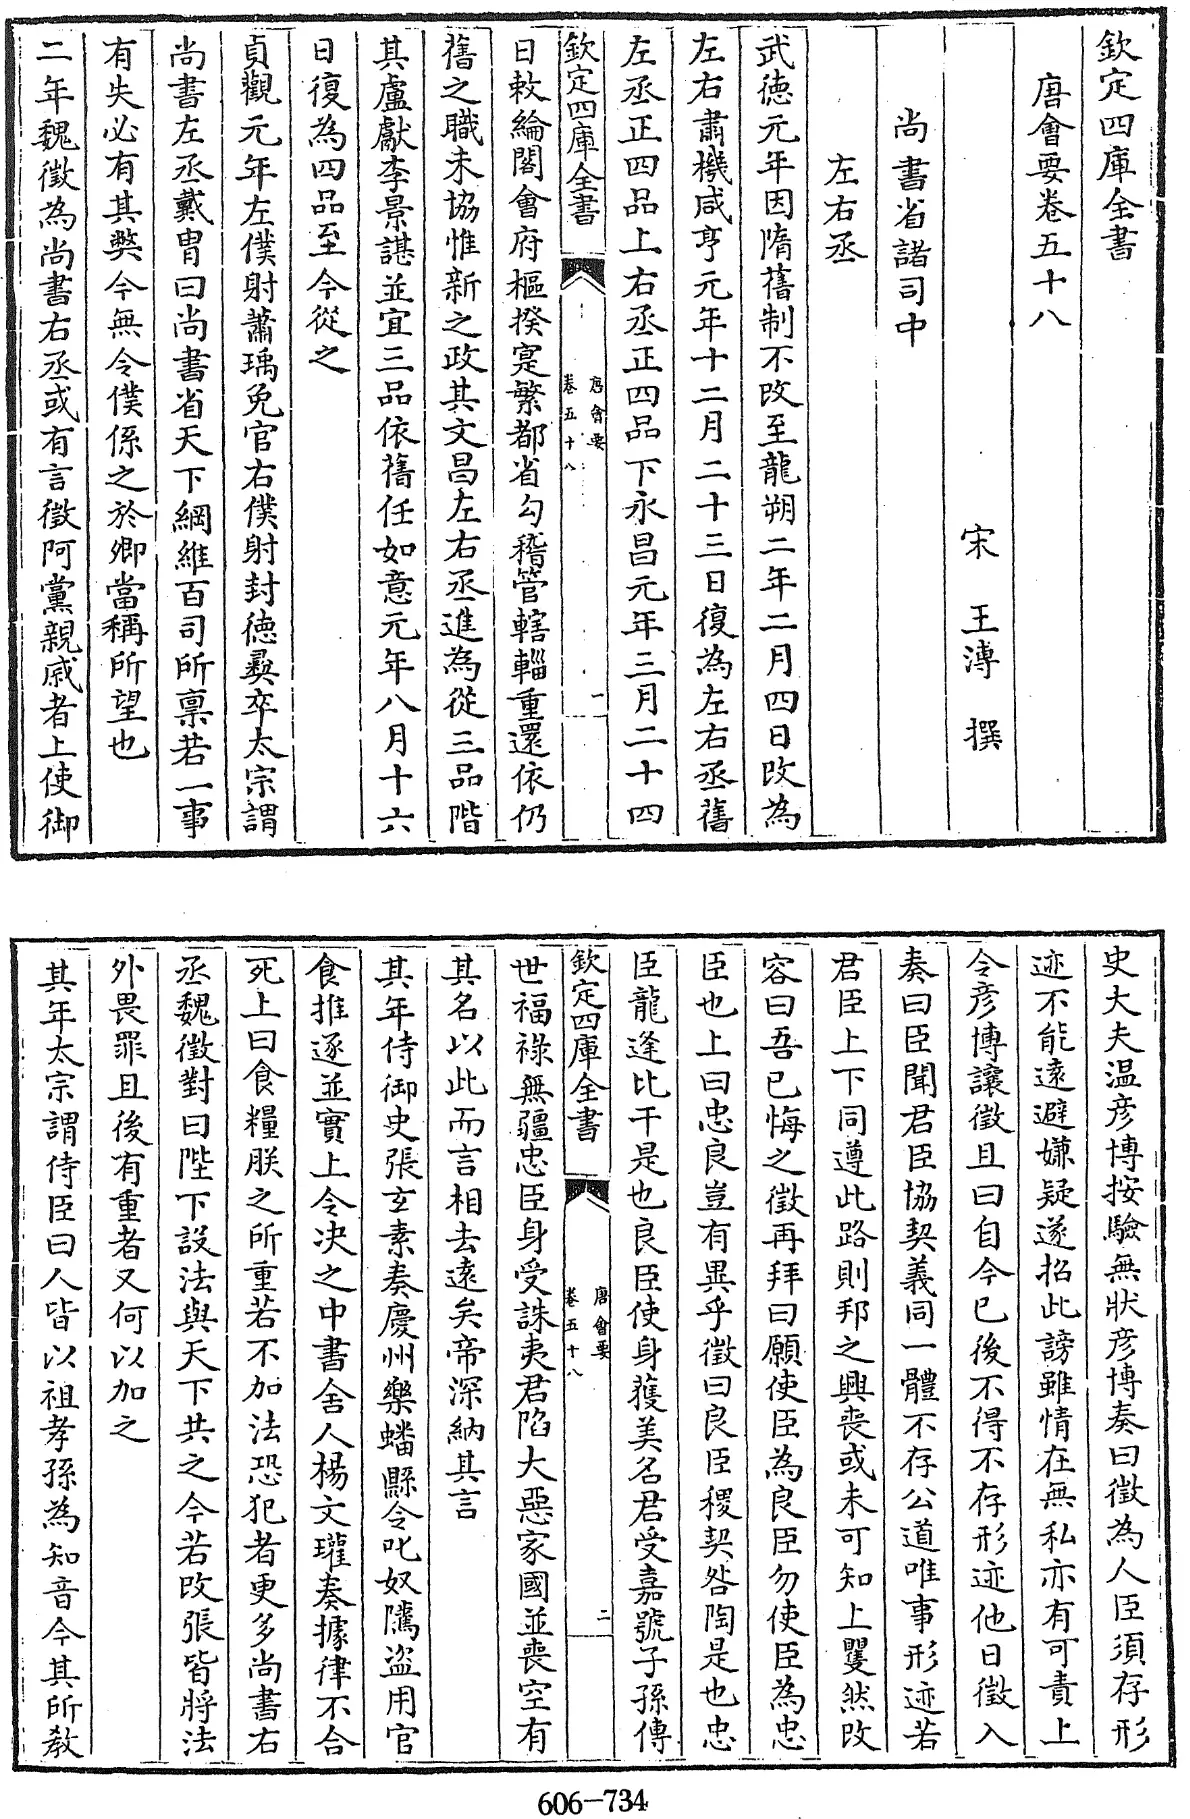 欽定四庫全書
唐會要卷五十八
宋　王溥　撰
尚書省諸司中
左右丞
武徳元年因隋舊制不改至龍朔二年二月四日改為
左右肅機咸亨元年十二月二十三日復為左右丞舊
左丞正四品上右丞正四品下永昌元年三月二十四
欽定四庫全書
唐會要
卷五十八
一
日敕綸閣會府樞揆寔繁都省勾稽管轄輜重還依仍
舊之職未協惟新之政其文昌左右丞進為從三品階
其盧獻李景諶並宜三品依舊任如意元年八月十六
日復為四品至今從之
貞觀元年左僕射蕭瑀免官右僕射封徳彛卒太宗謂
尚書左丞戴胄曰尚書省天下綱維百司所禀若一事
有失必有其弊今無令僕係之於卿當稱所望也
二年魏徵為尚書右丞或有言徵阿黨親戚者上使御
史大夫温彦博按驗無狀彦博奏曰徵為人臣須存形
迹不能逺避嫌疑遂招此謗雖情在無私亦有可責上
令彦博讓徵且曰自今已後不得不存形迹他日徵入
奏曰臣聞君臣協契義同一體不存公道唯事形迹若
君臣上下同遵此路則邦之興喪或未可知上瞿然改
容曰吾已悔之徵再拜曰願使臣為良臣勿使臣為忠
臣也上曰忠良豈有異乎徵曰良臣稷契咎陶是也忠
臣龍逢比干是也良臣使身獲美名君受嘉號子孫傳
欽定四庫全書
唐會要
卷五十八
二
世福祿無疆忠臣身受誅夷君陷大惡家國並喪空有
其名以此而言相去逺矣帝深納其言
其年侍御史張玄素奏慶州樂蟠縣令叱奴隲盜用官
食推逐並實上令決之中書舍人楊文瓘奏據律不合
死上曰食糧朕之所重若不加法恐犯者更多尚書右
丞魏徵對曰陛下設法與天下共之今若改張皆將法
外畏罪且後有重者又何以加之
其年太宗謂侍臣曰人皆以祖孝孫為知音今其所教
606-734